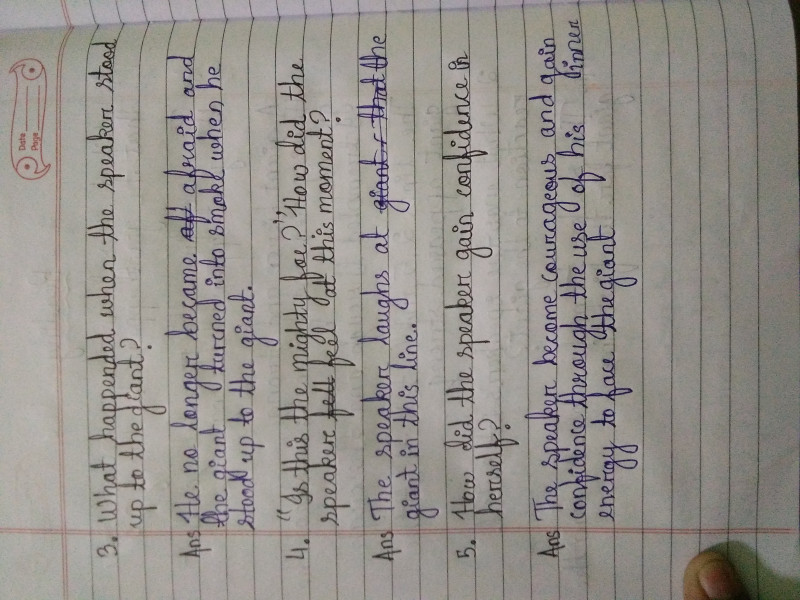 Date
Page
3. What happended when the speaker stood
up to the giant?
Ans He no longer became aff afraid and
the giant turned into smoke when he
stood up to the giant.
4. "Is this the mighty foe?" How did the
speaker felt feel at this moment?
Ans The speaker laughs at giant. that the
giant in this line.
5. How did the speaker gain confidence in
herself?
Ans The speaker become courageous and gain
confidence through the use of his inner
energy to face the giant